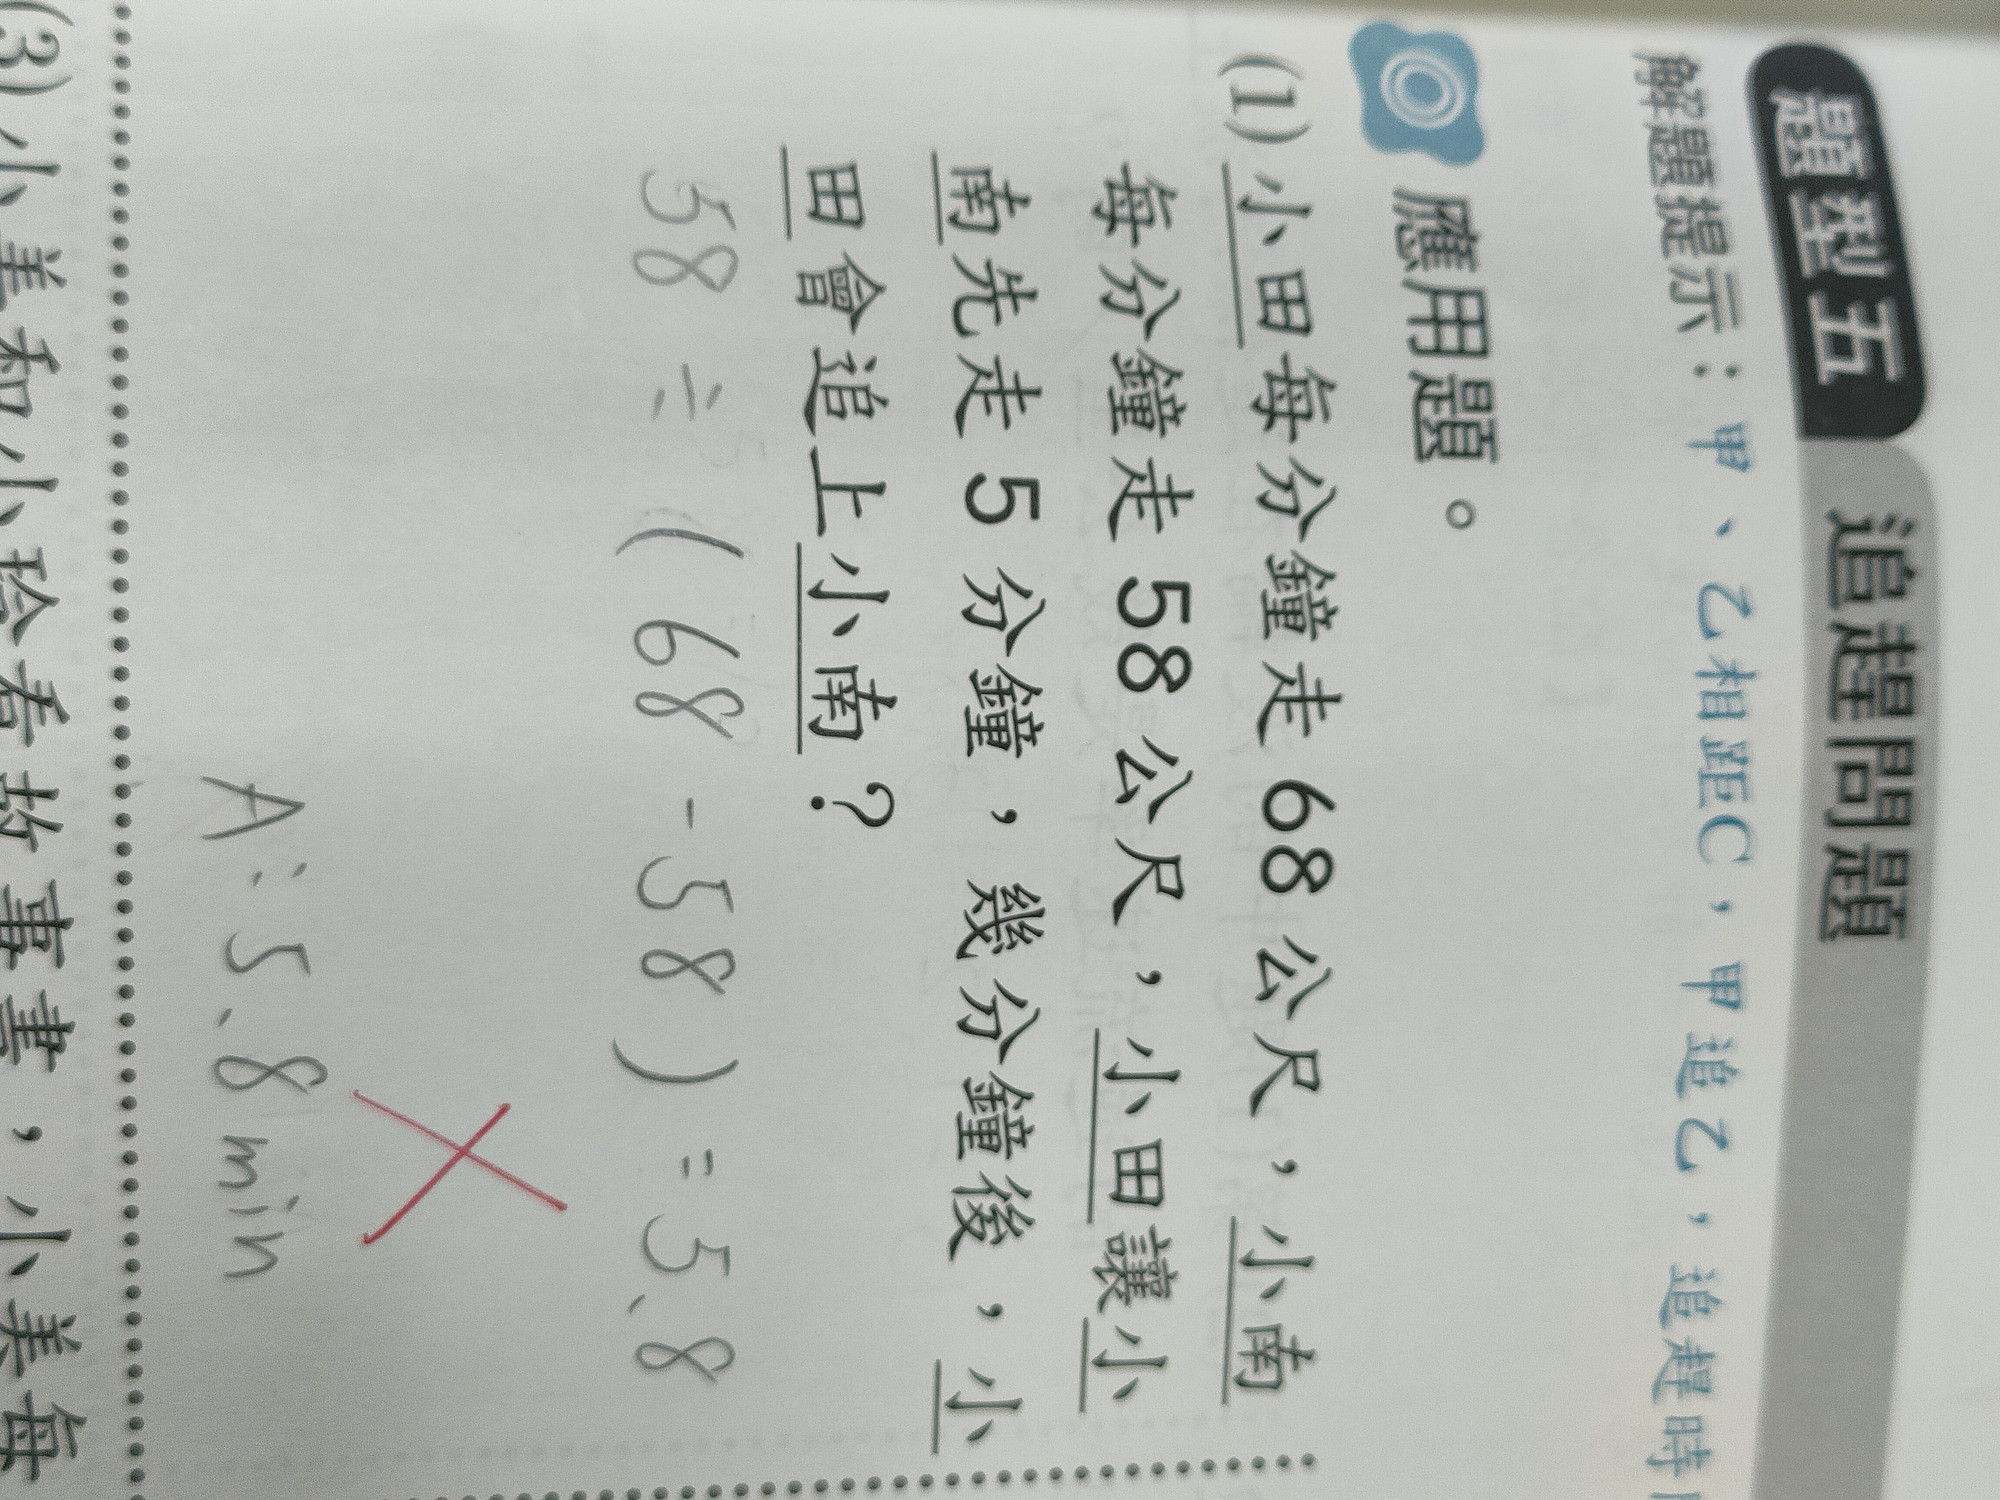 題型五 追趕問題
解題提示：甲、乙相距C，甲追乙，追趕時
應用題。
(1) 小田每分鐘走 68 公尺，小南
每分鐘走 58 公尺，小田讓小
南先走 5 分鐘，幾分鐘後，小
田會追上小南？
58 ÷ (68 - 58) = 5.8
A: 5.8 min
(3) 小美和小玲看故事書，小美每